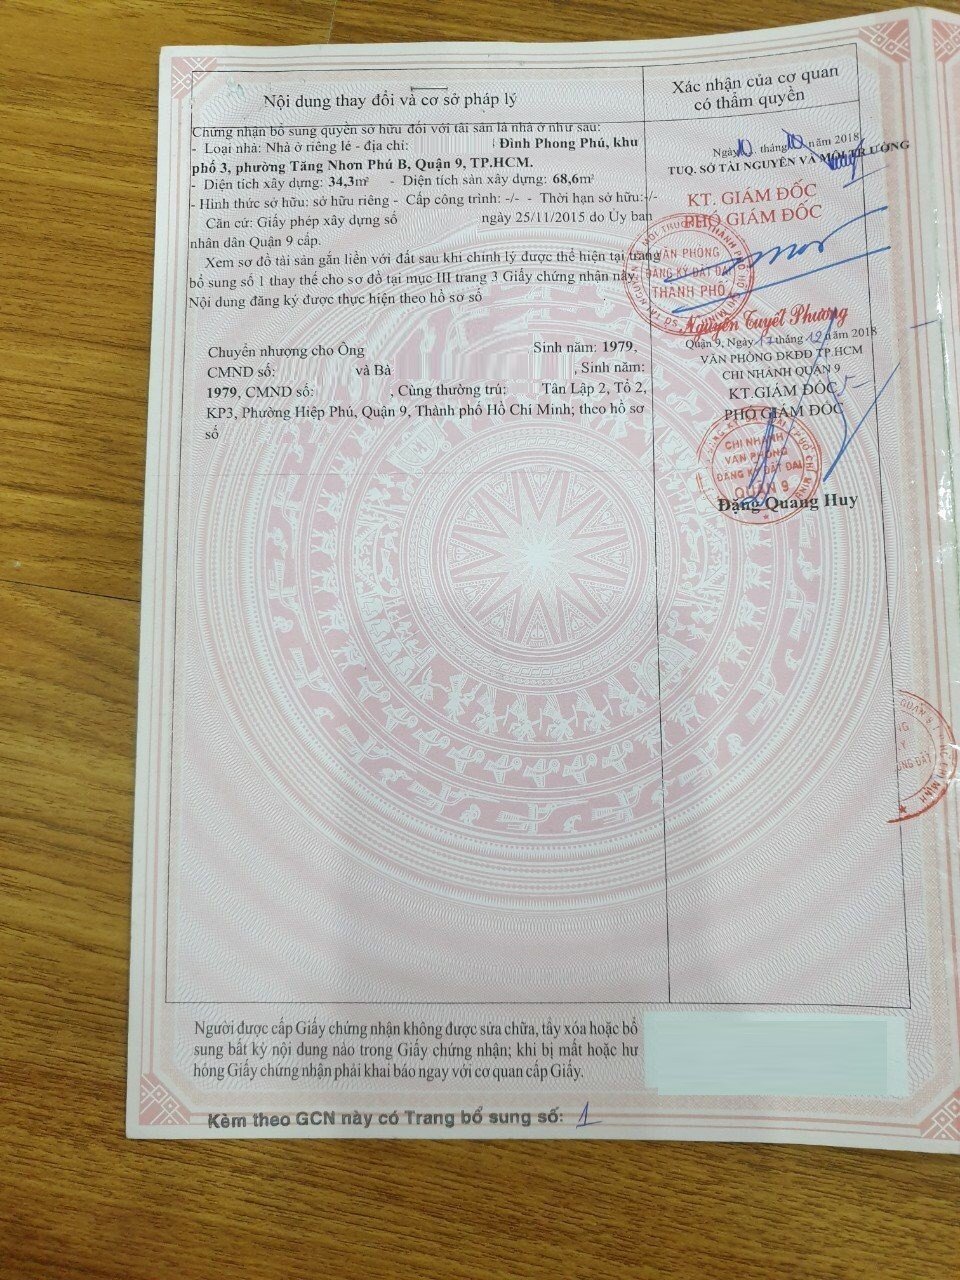 Nội dung thay đổi và cơ sở pháp lý
Xác nhận của cơ quan
có thẩm quyền
Chứng nhận bổ sung quyền sở hữu đối với tài sản là nhà ở như sau:
- Loại nhà: Nhà ở riêng lẻ - địa chỉ: Đình Phong Phú, khu
phố 3, phường Tăng Nhơn Phú B, Quận 9, TP.HCM.
- Diện tích xây dựng: 34,3m² - Diện tích sàn xây dựng: 68,6m²
- Hình thức sở hữu: sở hữu riêng - Cấp công trình: -/- - Thời hạn sở hữu:-/-
Căn cứ: Giấy phép xây dựng số ngày 25/11/2015 do Ủy ban
nhân dân Quận 9 cấp.
Xem sơ đồ tài sản gắn liền với đất sau khi chỉnh lý được thể hiện tại trang
bổ sung số 1 thay thế cho sơ đồ tại mục III trang 3 Giấy chứng nhận này
Nội dung đăng ký được thực hiện theo hồ sơ số
Ngày 10 tháng 10 năm 2018
TUQ. SỞ TÀI NGUYÊN VÀ MÔI TRƯỜNG
KT. GIÁM ĐỐC
PHÓ GIÁM ĐỐC
VĂN PHÒNG
ĐĂNG KÝ ĐẤT ĐAI
THÀNH PHỐ
Nguyễn Tuyết Phương
Chuyển nhượng cho Ông Sinh năm: 1979,
CMND số: và Bà , Sinh năm:
1979, CMND số: , Cùng thường trú: Tân Lập 2, Tổ 2,
KP3, Phường Hiệp Phú, Quận 9, Thành phố Hồ Chí Minh; theo hồ sơ
số
Quận 9, Ngày 17 tháng 12 năm 2018
VĂN PHÒNG ĐKĐĐ TP.HCM
CHI NHÁNH QUẬN 9
KT.GIÁM ĐỐC
PHÓ GIÁM ĐỐC
CHI NHÁNH
VĂN PHÒNG
ĐĂNG KÝ ĐẤT ĐAI
QUẬN 9
Đặng Quang Huy
Người được cấp Giấy chứng nhận không được sửa chữa, tẩy xóa hoặc bổ
sung bất kỳ nội dung nào trong Giấy chứng nhận; khi bị mất hoặc hư
hỏng Giấy chứng nhận phải khai báo ngay với cơ quan cấp Giấy.
Kèm theo GCN này có Trang bổ sung số: 1